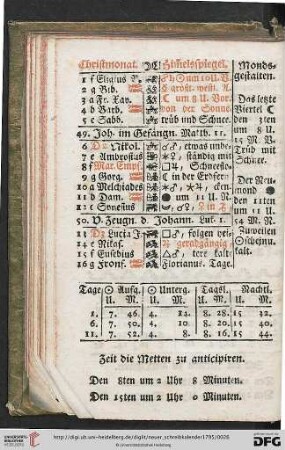 Christmonat. Himelsspiegel. Monds-
gestalten.
1 f Eligius B.
2 g Bib. größt. westl. A.
3 a Fr. Xav. um 8 U. Vor.
4 b Barb. von der Sonne
5 c Sabb. trüb und Schnee.
Das letzte
Viertel C
den 3ten
um 8 U.
15 M. V.
Trüb mit
Schnee.
49. Joh. im Gefängn. Matth. 11.
6 D2 Nikol. etwas unbe-
7 e Ambrosius ständig mit
8 f Mar. Empf. Schneefo.
9 g Gorg. in der Erdfer:
10 a Melchiades
11 b Dam. um 11 U. N.
12 c Synesius
Der Neu-
mond
den 11ten
um 11 U.
54 M. N.
Zuweilen
50. V. Zeugn. d. Johann. Luk. 1.
13 D3 Lucia J. folgen
14 e Nikas. geradgängig
15 f Eusebius
16 g Fronf. Florianus. Tage.
Tage. Aufg. Unterg. Tagsl. Nachtl.
U. M. U. M. U. M. U. M.
1. 7. 46. 4. 12. 8. 28. 15 32.
6. 7. 50. 4. 10. 8. 20. 15 40.
11. 7. 52. 4. 8. 8. 16. 15 44.
Zeit die Metten zu anticipiren.
Den 8ten um 2 Uhr 8 Minuten.
Den 15ten um 2 Uhr 0 Minuten.
http://digi.ub.uni-heidelberg.de/diglit/neuer_schreibkalender1795/0026
© Universitätsbibliothek Heidelberg
gefördert durch die
DFG